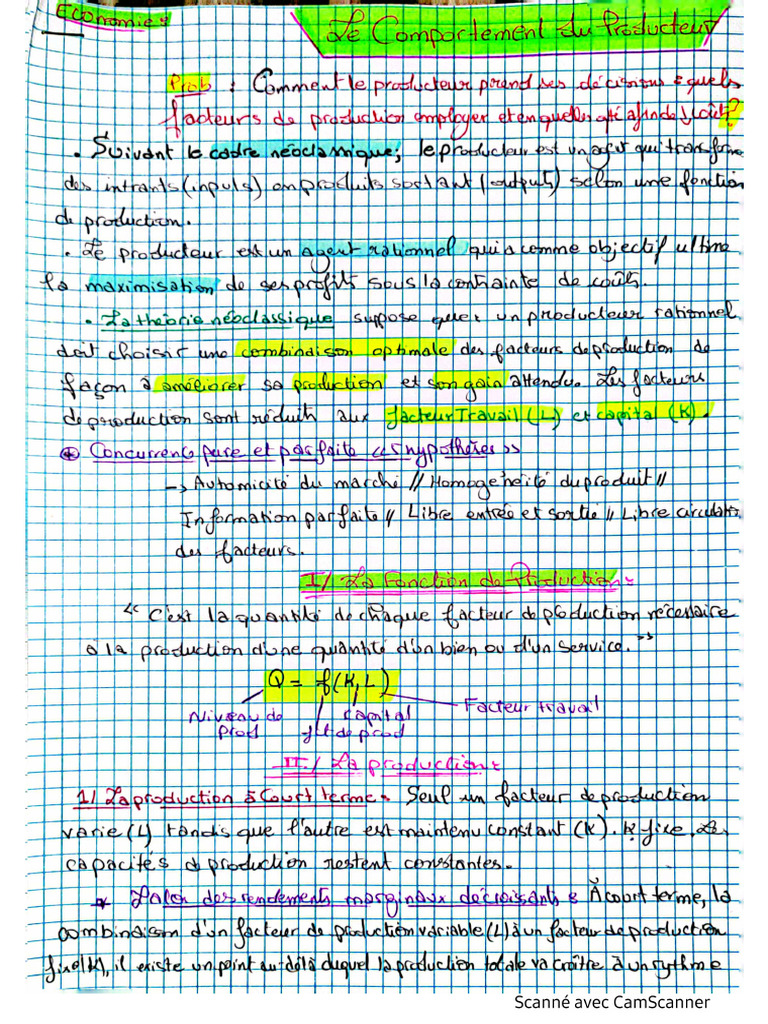 Economie :
Le Comportement du Producteur
Prob : Comment le producteur prend ses décisions : quels
facteurs de production employer et en quelles qté afin de ↓ coût ?
• Suivant le cadre néoclassique, le producteur est un agent qui transforme
des intrants (inputs) en produits sortant (outputs) selon une fonction
de production.
• Le producteur est un agent rationnel qui a comme objectif ultime
la maximisation de ses profits sous la contrainte de coûts.
• La théorie néoclassique suppose que : un producteur rationnel
doit choisir une combindison optimale des facteurs de production de
façon à améliorer sa production et son gain attendu. Les facteurs
de production sont réduit aux facteur Travail (L) et capital (K).
Concurrence pure et parfaite « 5 hypothèses »
-> Automicité du marché // Homogeneité du produit //
Information parfaite // Libre entrée et sortie // Libre circulation
des facteurs.
I/ La Fonction de Production :
" C'est la quantité de chaque facteur de production nécessaire
à la production d'une quantité d'un bien ou d'un service. "
Q = f(K, L)
Niveau de prod
capital
Facteur travail
fct de prod
II/ La production :
1/ La production à Court terme : Seul un facteur de production
varie (L) tandis que l'autre est maintenu constant (K). K fixe, Les
capacités de production restent constantes.
* La loi des rendements marginaux décroissants : À court terme, la
combindison d'un facteur de production variable (L) à un facteur de production
fixe (K), il existe un point au-délà duquel la production totale va croître à un rythme
Scanné avec CamScanner